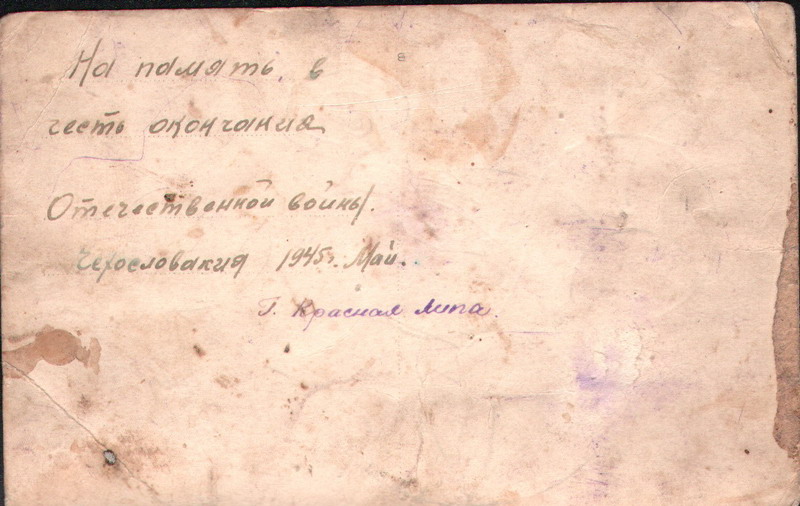 На память, в
честь окончания
Отечественной войны.
Чехословакия 1945г. Май.
Г. Красная Липа.